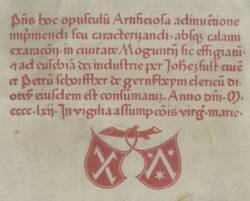 Pñs hoc opusculū Artificiosa adinuētione
impͥmendi seu caracterizandi. absqꝫ calami
exaracōn. in ciuitate Moguntñ sic effigiatū.
⁊ ad eusebiā dei industrie per Johēꝫ fust ciuē
et Petrū schoiffher de gernßheym clericū di-
otes̄ eiusdem est consumatū. Anno dñi M.
cccc lxii. In vigilia assumpcōis virgͥ. marie.